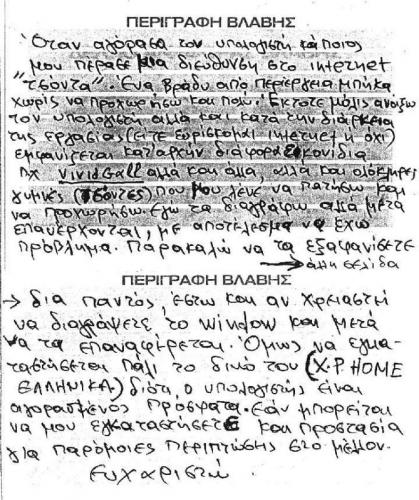 ΠΕΡΙΓΡΑΦΗ ΒΛΑΒΗΣ
Όταν αγόρασα τον υπολογιστή κάποιος
μου πέρασε μια διεύθυνση στο internet
"τσόντα". Ένα βράδυ από περιέργεια μπήκα
χωρίς να προχωρήσω και πολύ. Έκτοτε μόλις ανοίξω
τον υπολογιστή αλλά και κατά την διάρκεια
της εργασίας (είτε ευρίσκομαι internet ή όχι)
εμφανίζεται κατ' αρχήν διάφορα εικονίδια
πχ VIVIDGALL αλλά και άλλα, αλλά και ολόκληρες
γυμνές (τσόντες) που μου λένε να πατήσω και
να προχωρήσω. Εγώ τα διαγράφω, αλλά μετά
επανέρχονται, με αποτέλεσμα να έχω
πρόβλημα. Παρακαλώ να τα εξαφανίσετε
→ άλλη σελίδα
ΠΕΡΙΓΡΑΦΗ ΒΛΑΒΗΣ
→ δια παντός, έστω και αν χρειαστεί
να διαγράψετε το window και μετά
να τα επαναφέρεται. Όμως να εγκα-
ταστήσεται πάλι το δικό του (X.P. HOME
ΕΛΛΗΝΙΚΑ) διότι ο υπολογιστής είναι
αγορασμένος πρόσφατα. Εάν μπορείται
να μου εγκαταστήσετε και προστασία
για παρόμοιες περιπτώσης στο μέλλον.
Ευχαριστώ